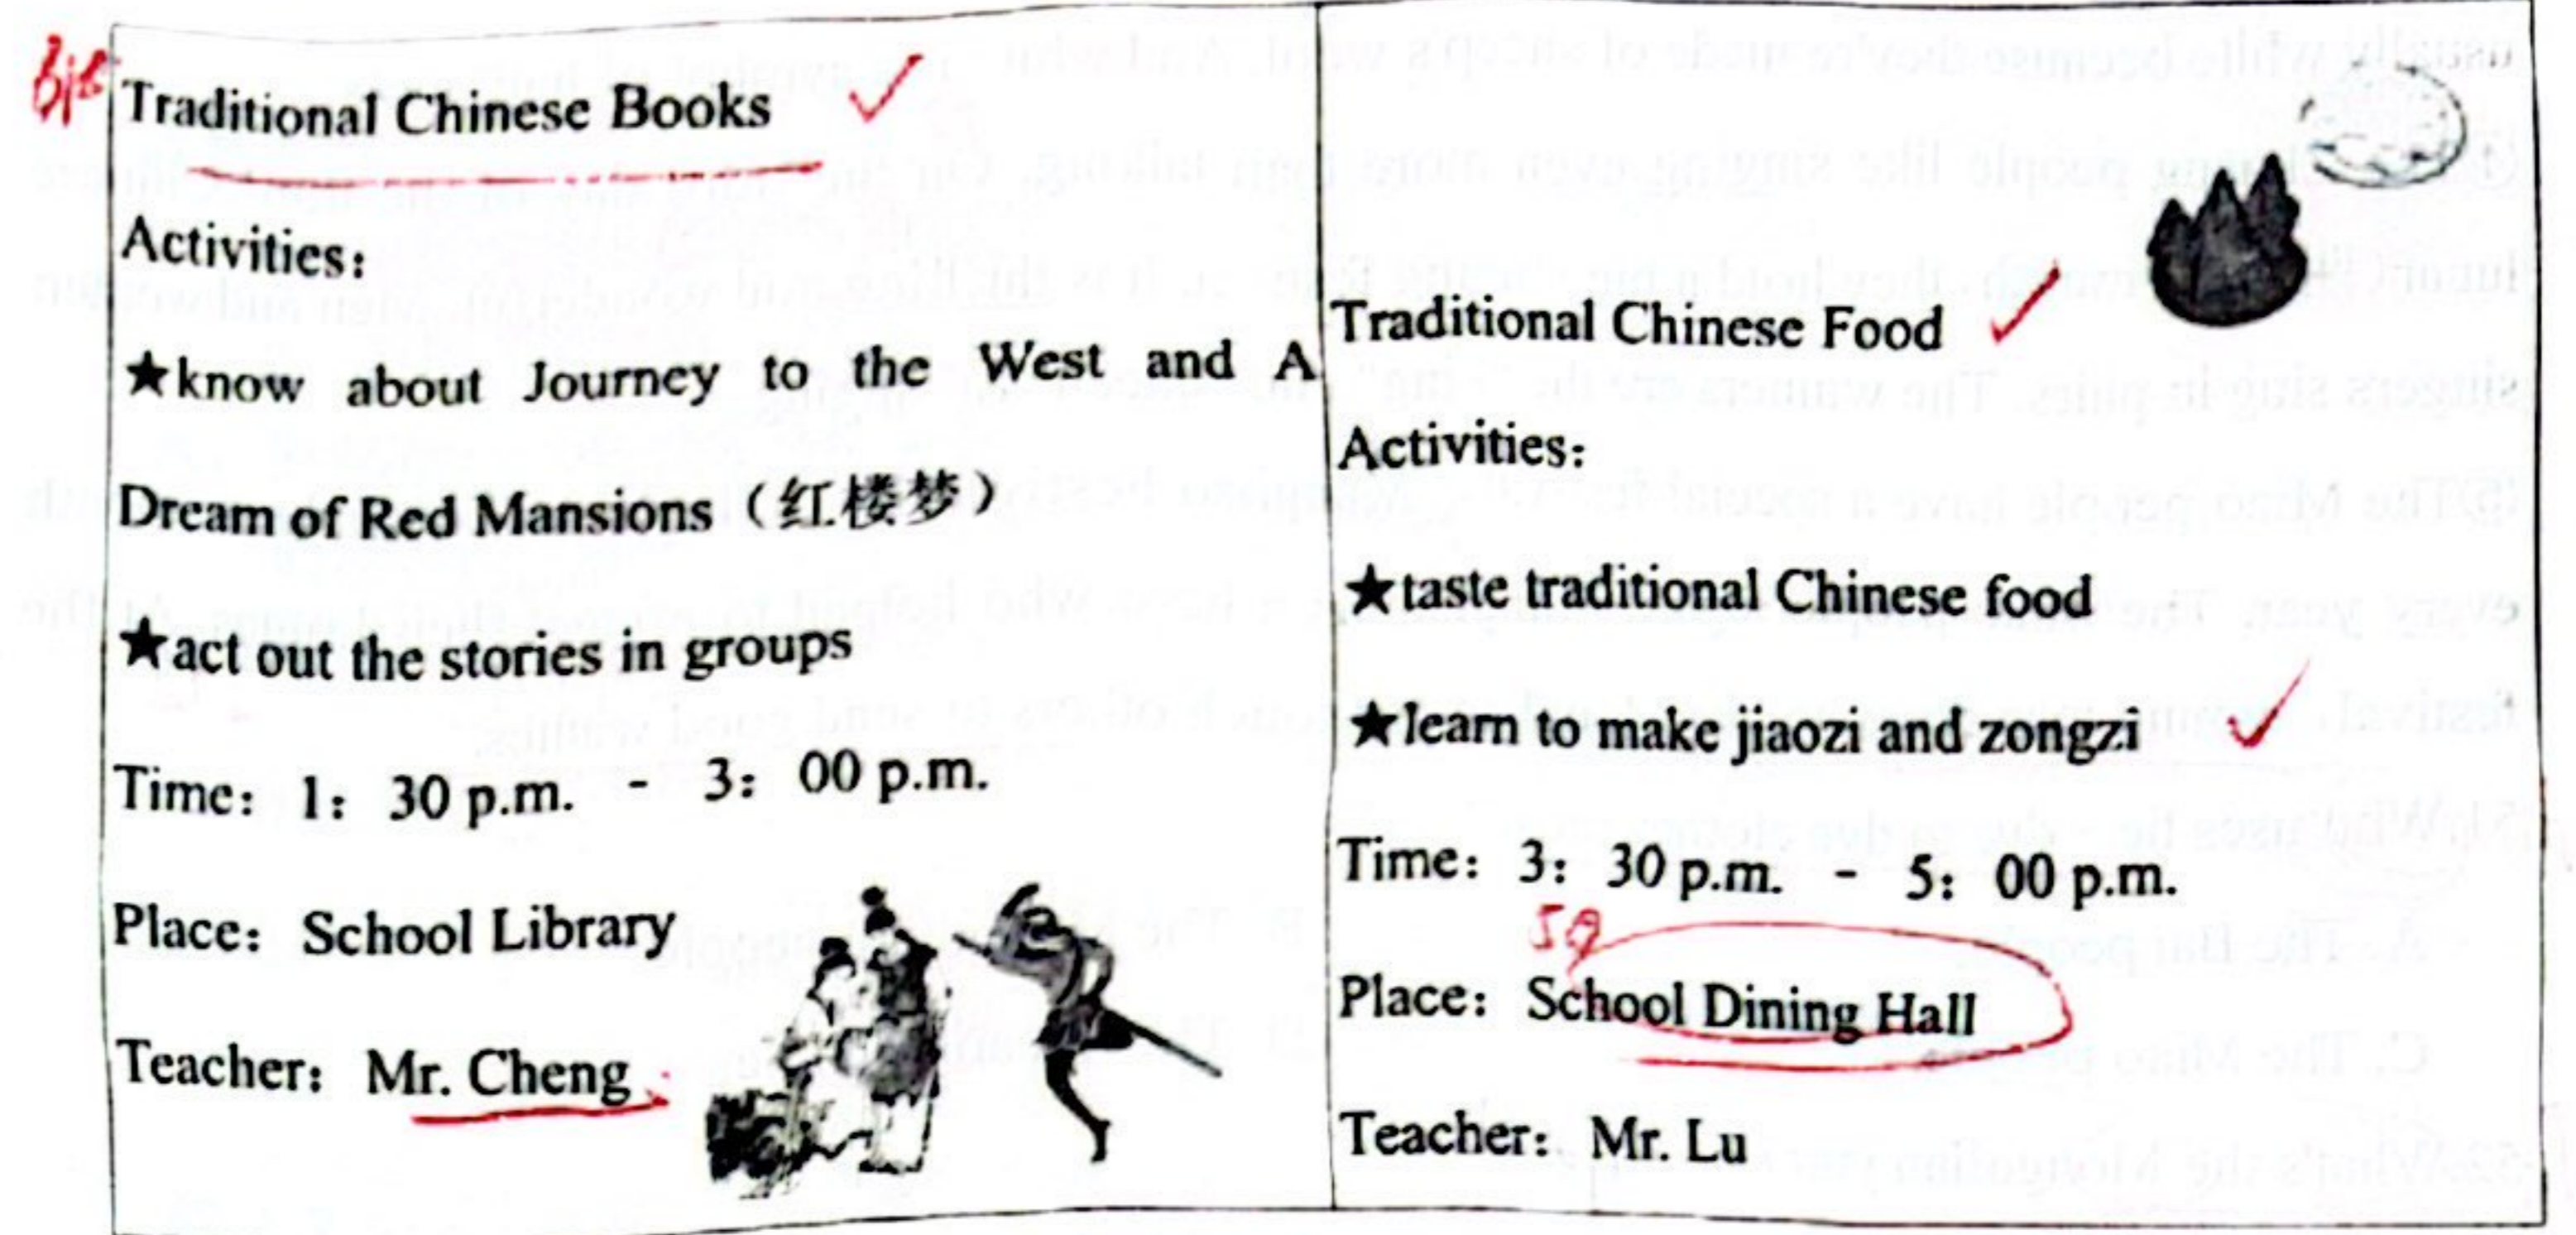 Traditional Chinese Books
Activities:
★know about Journey to the West and A
Dream of Red Mansions（红楼梦）
★act out the stories in groups
Time: 1: 30 p.m. - 3: 00 p.m.
Place: School Library
Teacher: Mr. Cheng
Traditional Chinese Food
Activities:
★taste traditional Chinese food
★learn to make jiaozi and zongzi
Time: 3: 30 p.m. - 5: 00 p.m.
Place: School Dining Hall
Teacher: Mr. Lu